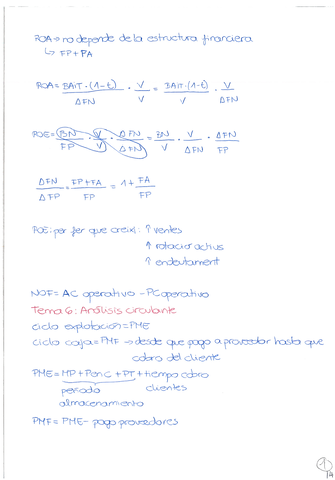 ROA → no depende de la estructura financiera
↳ FP + PA
ROA = BAIT · (1-t) / Δ FN · V / V = BAIT · (1-t) / V · V / Δ FN
ROE = BN / FP · V / V · Δ FN / Δ FN = BN / V · V / Δ FN · Δ FN / FP
Δ FN / Δ FP = FP + FA / FP = 1 + FA / FP
ROE: per fer que creixi: ↑ ventes
↑ rotacio actius
↑ endeutament
NOF = AC operativo - PC operativo
Tema 6: Análisis circulante
ciclo explotación = PME
ciclo caja = PMF → desde que pago a proveedor hasta que
cobro del cliente
PME = MP + PenC + PT + tiempo cobro
periodo clientes
almacenamiento
PMF = PME - pago proveedores
1